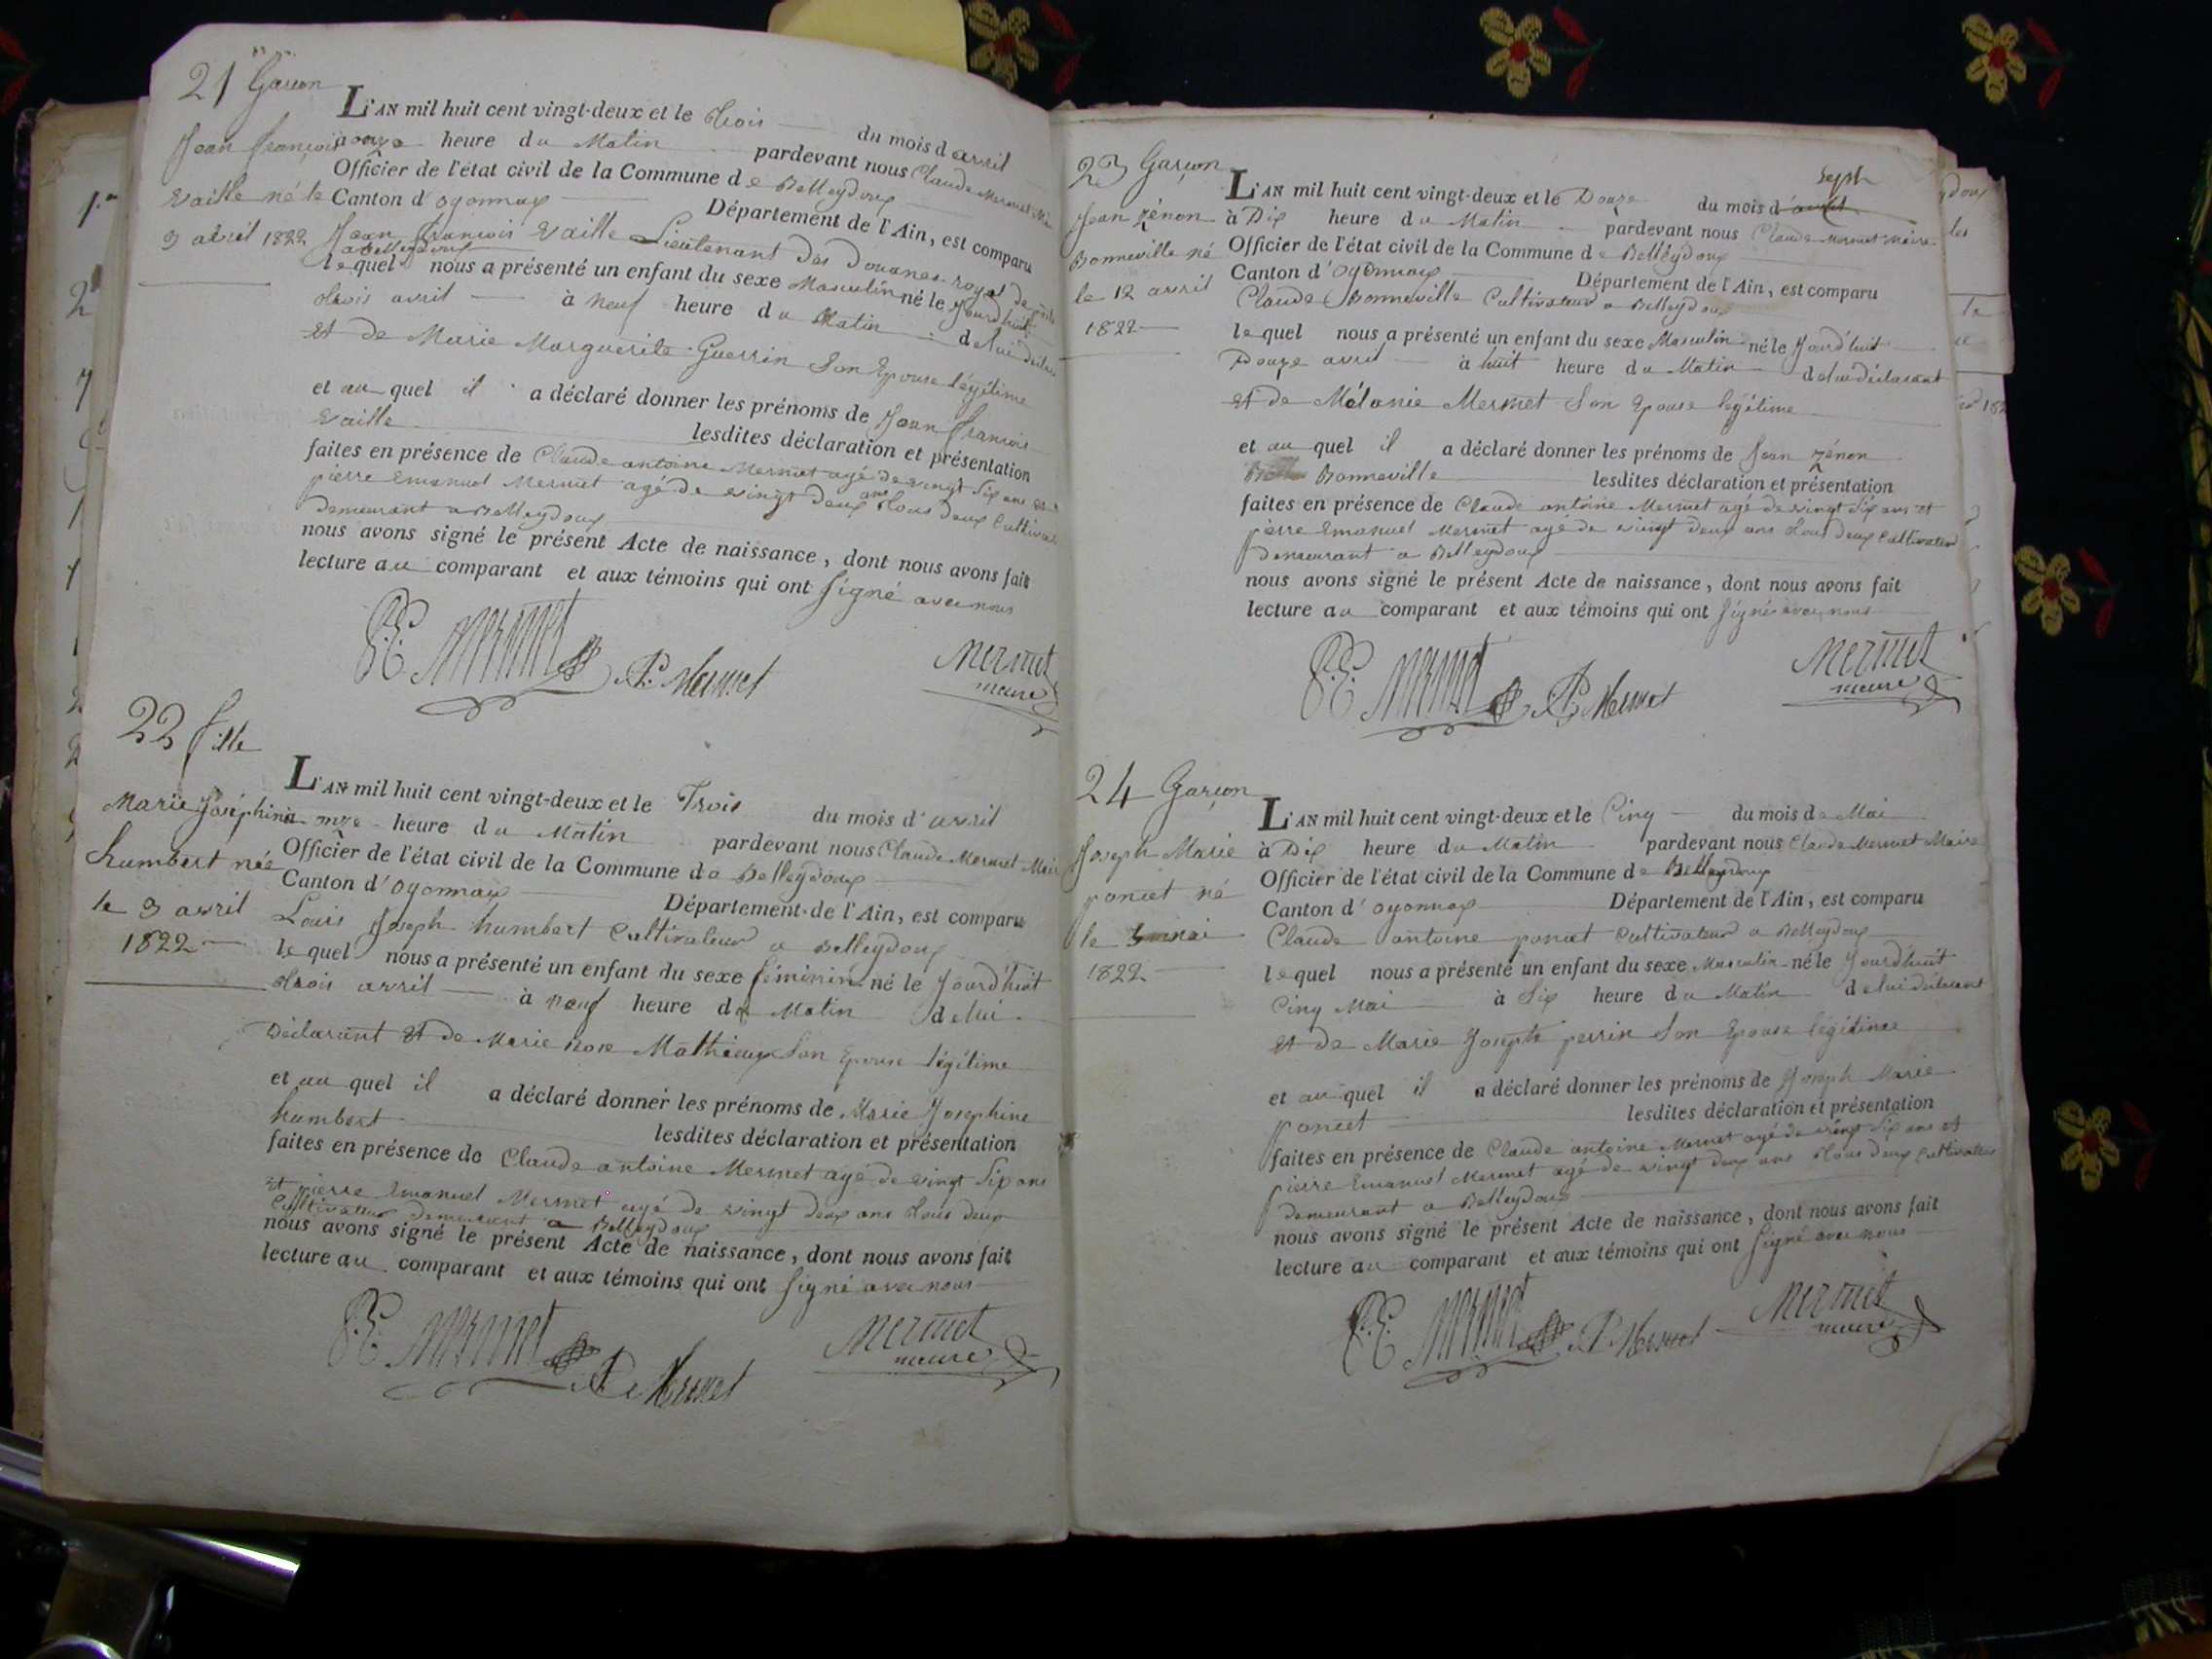 21 Garçon
Jean François
Vaille né le
3 avril 1822
L'AN mil huit cent vingt-deux et le trois du mois d avril
a onze heure du Matin pardevant nous Claude Mermet Maire
Officier de l'état civil de la Commune de Belleydoux
Canton d'oyonnax Département de l'Ain, est comparu
Jean François Vaille Lieutenant des Douanes royal de poste
a Belleydoux
lequel nous a présenté un enfant du sexe Masculin né le Jourd'huit
trois avril à neuf heure du Matin de lui déclarant
et de Marie Marguerite Guerrin Son Epouse légitime
et au quel il a déclaré donner les prénoms de Jean François
Vaille lesdites déclaration et présentation
faites en présence de Claude antoine Mermet agé de vingt Six ans et
pierre Emanuel Mermet agé de vingt deux ans tous deux Cultivateur
demeurant a Belleydoux
nous avons signé le présent Acte de naissance, dont nous avons fait
lecture au comparant et aux témoins qui ont Signé avec nous
P.E. Mermet Mermet
Mermet
maire
22 fille
Marie Joséphine
humbert née
le 3 avril
1822
L'AN mil huit cent vingt-deux et le Trois du mois d'avril
a onze heure du Matin pardevant nous Claude Mermet Maire
Officier de l'état civil de la Commune de Belleydoux
Canton d'oyonnax Département de l'Ain, est comparu
Louis Joseph humbert Cultivateur a Belleydoux
lequel nous a présenté un enfant du sexe féminin né le Jourd'huit
trois avril à neuf heure du Matin de lui
Déclarant et de Marie Rose Mathieux Son Epouse légitime
et au quel il a déclaré donner les prénoms de Marie Josephine
humbert lesdites déclaration et présentation
faites en présence de Claude antoine Mermet agé de vingt Six ans
et pierre Emanuel Mermet agé de vingt deux ans tous deux
Cultivateur demeurant a Belleydoux
nous avons signé le présent Acte de naissance, dont nous avons fait
lecture au comparant et aux témoins qui ont Signé avec nous
P.E. Mermet Mermet
Mermet
maire
23 Garçon
Jean zénon
Bonneville né
le 12 avril
1822
L'AN mil huit cent vingt-deux et le Douze du mois d'avril
à Dix heure du Matin pardevant nous Claude Mermet Maire
Officier de l'état civil de la Commune de Belleydoux
Canton d'Oyonnax Département de l'Ain, est comparu
Claude Bonneville Cultivateur a Belleydoux
lequel nous a présenté un enfant du sexe Masculin né le Jourd'huit
Douze avril à huit heure du Matin de lui déclarant
et de Mélanie Mermet Son Epouse legitime
et au quel il a déclaré donner les prénoms de Jean zénon
Bonneville lesdites déclaration et présentation
faites en présence de Claude antoine Mermet agé de vingt Six ans et
pierre Emanuel Mermet agé de vingt deux ans tous deux Cultivateur
demeurant a Belleydoux
nous avons signé le présent Acte de naissance, dont nous avons fait
lecture au comparant et aux témoins qui ont Signé avec nous
P.E. Mermet Mermet
Mermet
maire
24 Garçon
Joseph Marie
poncet né
le 5 mai
1822
L'AN mil huit cent vingt-deux et le Cinq du mois de Mai
à Dix heure du Matin pardevant nous Claude Mermet Maire
Officier de l'état civil de la Commune de Belleydoux
Canton d'oyonnax Département de l'Ain, est comparu
Claude antoine poncet Cultivateur a Belleydoux
lequel nous a présenté un enfant du sexe Masculin né le Jourd'huit
Cinq Mai à Six heure du Matin de lui déclarant
et de Marie Joseph perrin Son Epouse légitime
et au quel il a déclaré donner les prénoms de Joseph Marie
poncet lesdites déclaration et présentation
faites en présence de Claude antoine Mermet agé de vingt Six ans et
pierre Emanuel Mermet agé de vingt deux ans tous deux Cultivateur
demeurant a Belleydoux
nous avons signé le présent Acte de naissance, dont nous avons fait
lecture au comparant et aux témoins qui ont Signé avec nous
P.E. Mermet P. Mermet
Mermet
maire